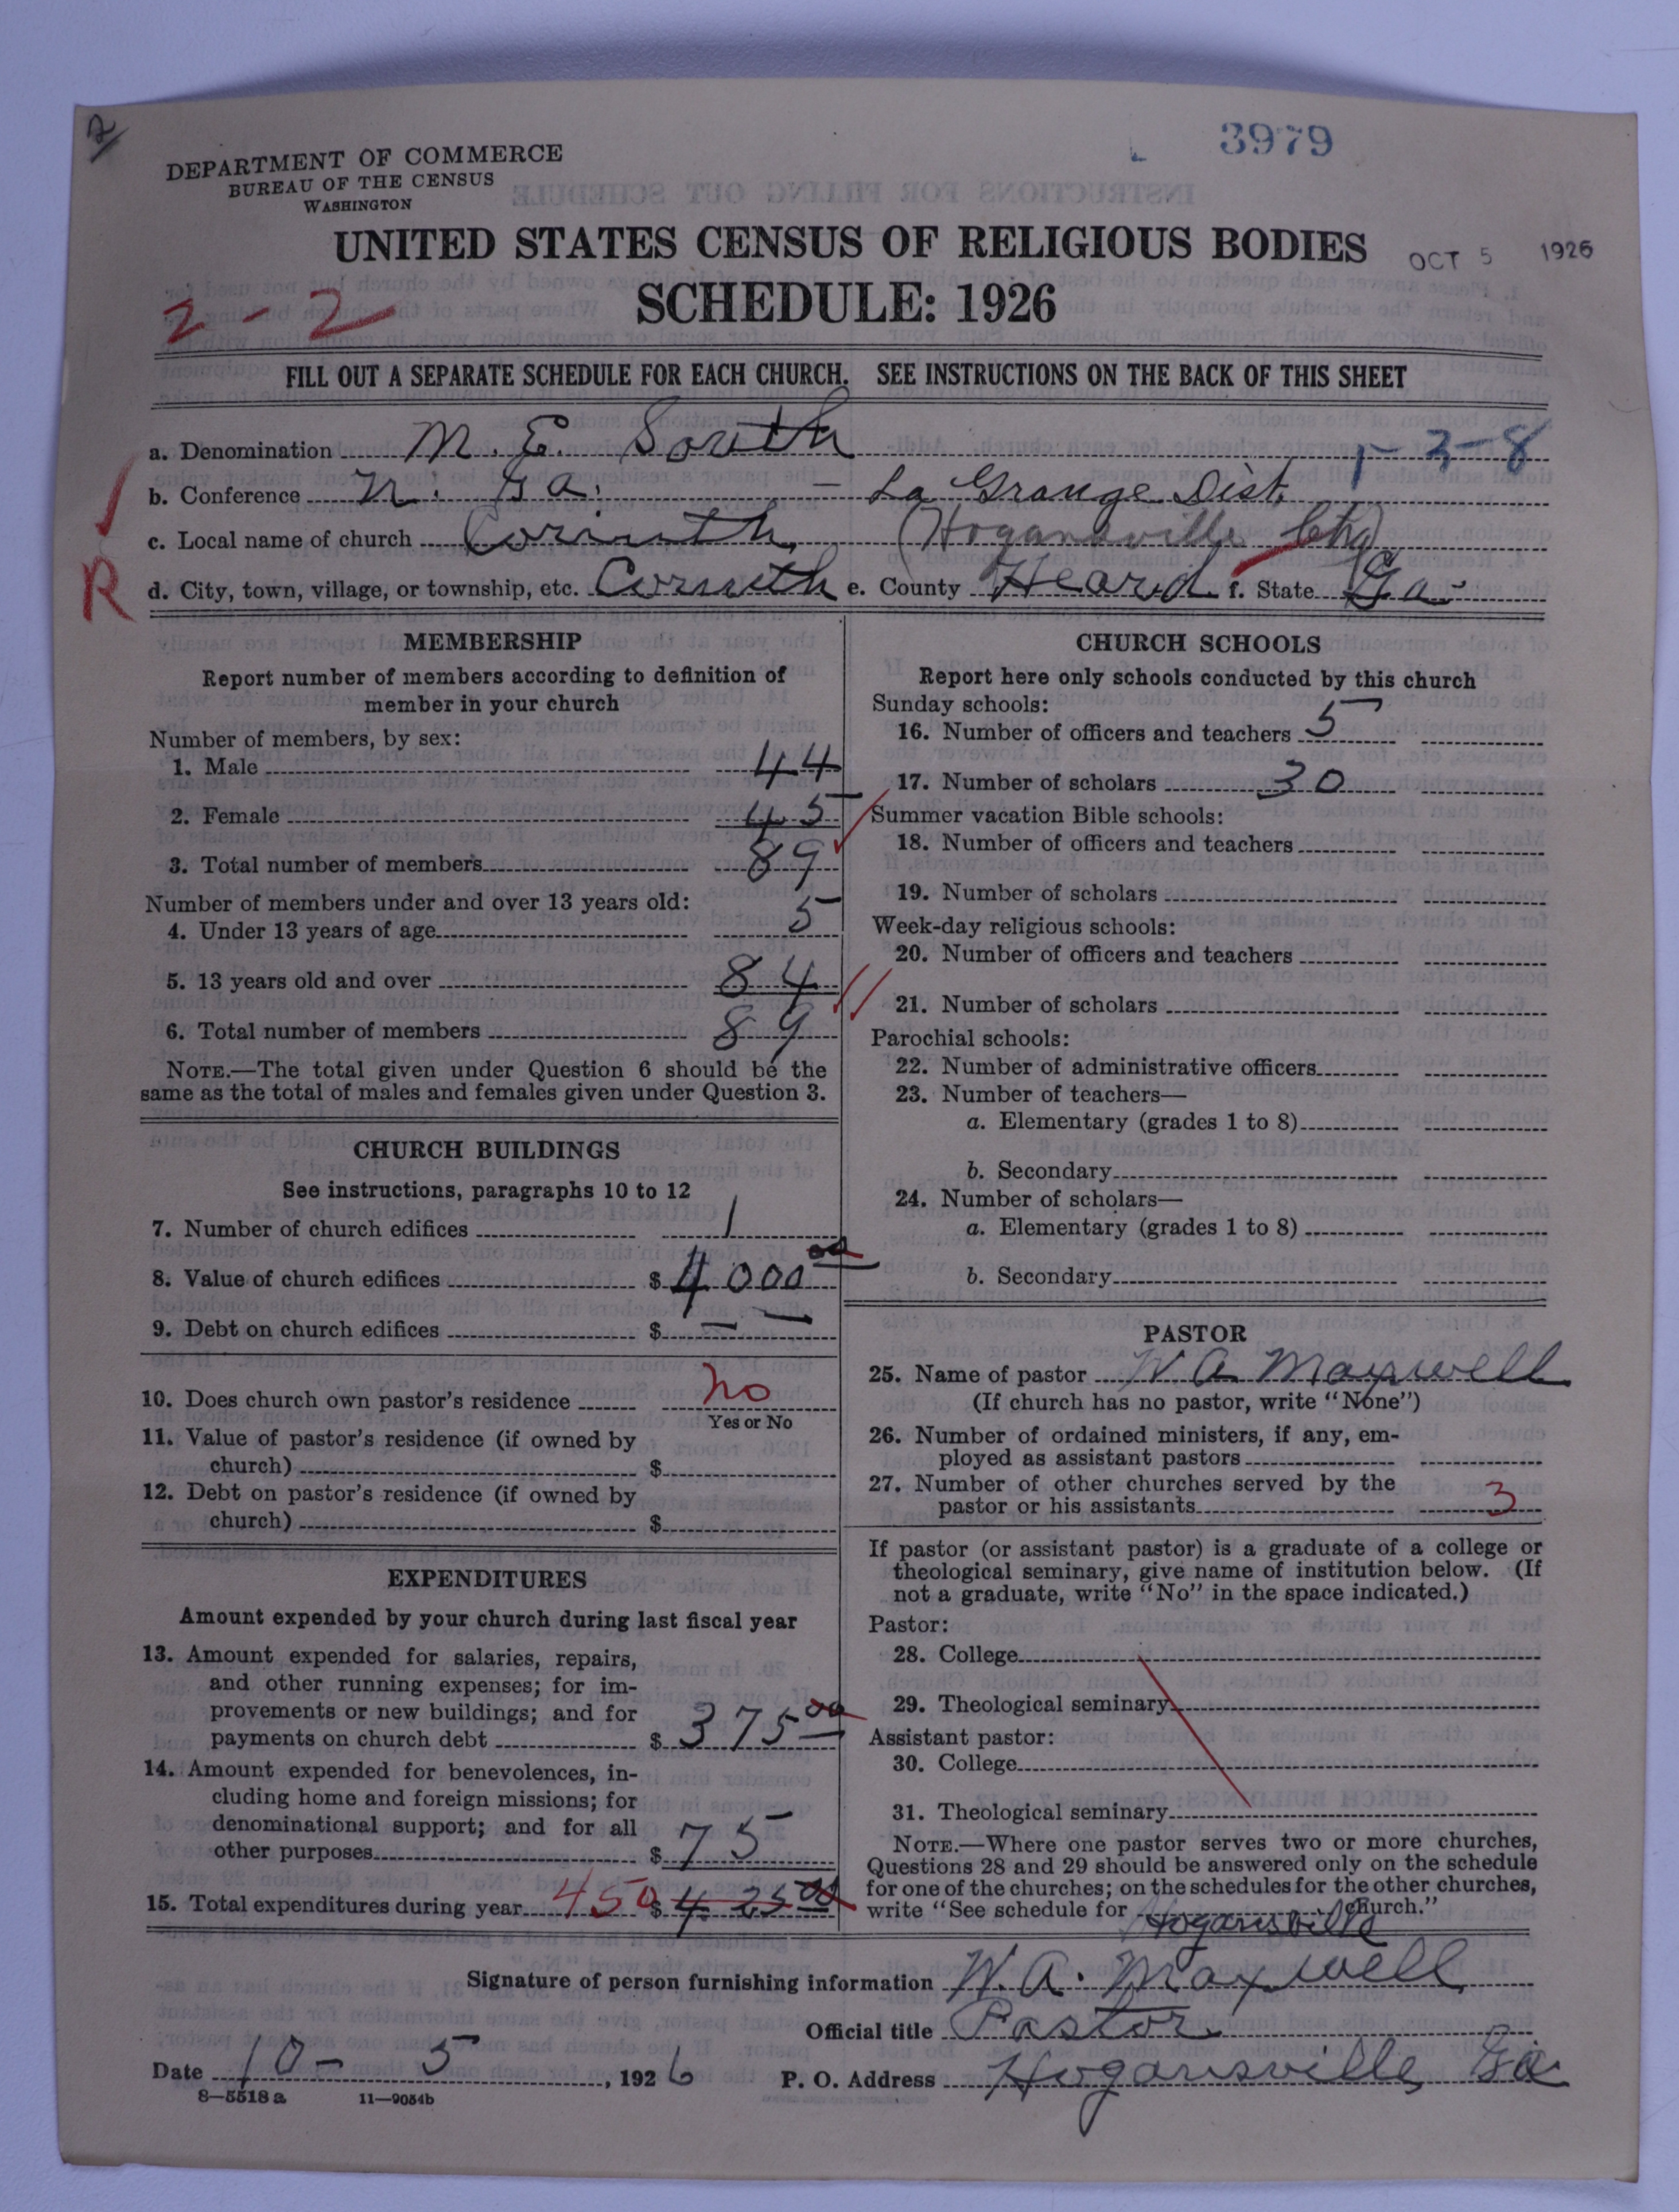 2
3979
DEPARTMENT OF COMMERCE
BUREAU OF THE CENSUS
WASHINGTON
UNITED STATES CENSUS OF RELIGIOUS BODIES
OCT 5 1926
2-2
SCHEDULE: 1926
FILL OUT A SEPARATE SCHEDULE FOR EACH CHURCH. SEE INSTRUCTIONS ON THE BACK OF THIS SHEET
a. Denomination M. E. South 1-3-8
b. Conference N. Ga. – La Grange Dist.
c. Local name of church Corinth, (Hogansville Chg)
R
d. City, town, village, or township, etc. Corinth e. County Heard f. State Ga.
MEMBERSHIP
Report number of members according to definition of
member in your church
Number of members, by sex:
1. Male 44
2. Female 45
3. Total number of members 89
Number of members under and over 13 years old:
4. Under 13 years of age 5
5. 13 years old and over 84
6. Total number of members 89
NOTE.—The total given under Question 6 should be the
same as the total of males and females given under Question 3.
CHURCH BUILDINGS
See instructions, paragraphs 10 to 12
7. Number of church edifices 1
8. Value of church edifices $ 4000 00
9. Debt on church edifices $ — —
10. Does church own pastor's residence No
Yes or No
11. Value of pastor's residence (if owned by
church) $
12. Debt on pastor's residence (if owned by
church) $
EXPENDITURES
Amount expended by your church during last fiscal year
13. Amount expended for salaries, repairs,
and other running expenses; for im-
provements or new buildings; and for
payments on church debt $ 375 00
14. Amount expended for benevolences, in-
cluding home and foreign missions; for
denominational support; and for all
other purposes $ 75
15. Total expenditures during year 450 $ 425 00
CHURCH SCHOOLS
Report here only schools conducted by this church
Sunday schools:
16. Number of officers and teachers 5
17. Number of scholars 30
Summer vacation Bible schools:
18. Number of officers and teachers
19. Number of scholars
Week-day religious schools:
20. Number of officers and teachers
21. Number of scholars
Parochial schools:
22. Number of administrative officers
23. Number of teachers—
a. Elementary (grades 1 to 8)
b. Secondary
24. Number of scholars—
a. Elementary (grades 1 to 8)
b. Secondary
PASTOR
25. Name of pastor W A Maxwell
(If church has no pastor, write "None")
26. Number of ordained ministers, if any, em-
ployed as assistant pastors
27. Number of other churches served by the
pastor or his assistants 3
If pastor (or assistant pastor) is a graduate of a college or
theological seminary, give name of institution below. (If
not a graduate, write "No" in the space indicated.)
Pastor:
28. College
29. Theological seminary
Assistant pastor:
30. College
31. Theological seminary
NOTE.—Where one pastor serves two or more churches,
Questions 28 and 29 should be answered only on the schedule
for one of the churches; on the schedules for the other churches,
write "See schedule for Hogansville Church."
Signature of person furnishing information W. A. Maxwell
Official title Pastor
Date 10-5, 1926 P. O. Address Hogansville, Ga
8—5518 a 11—9054b